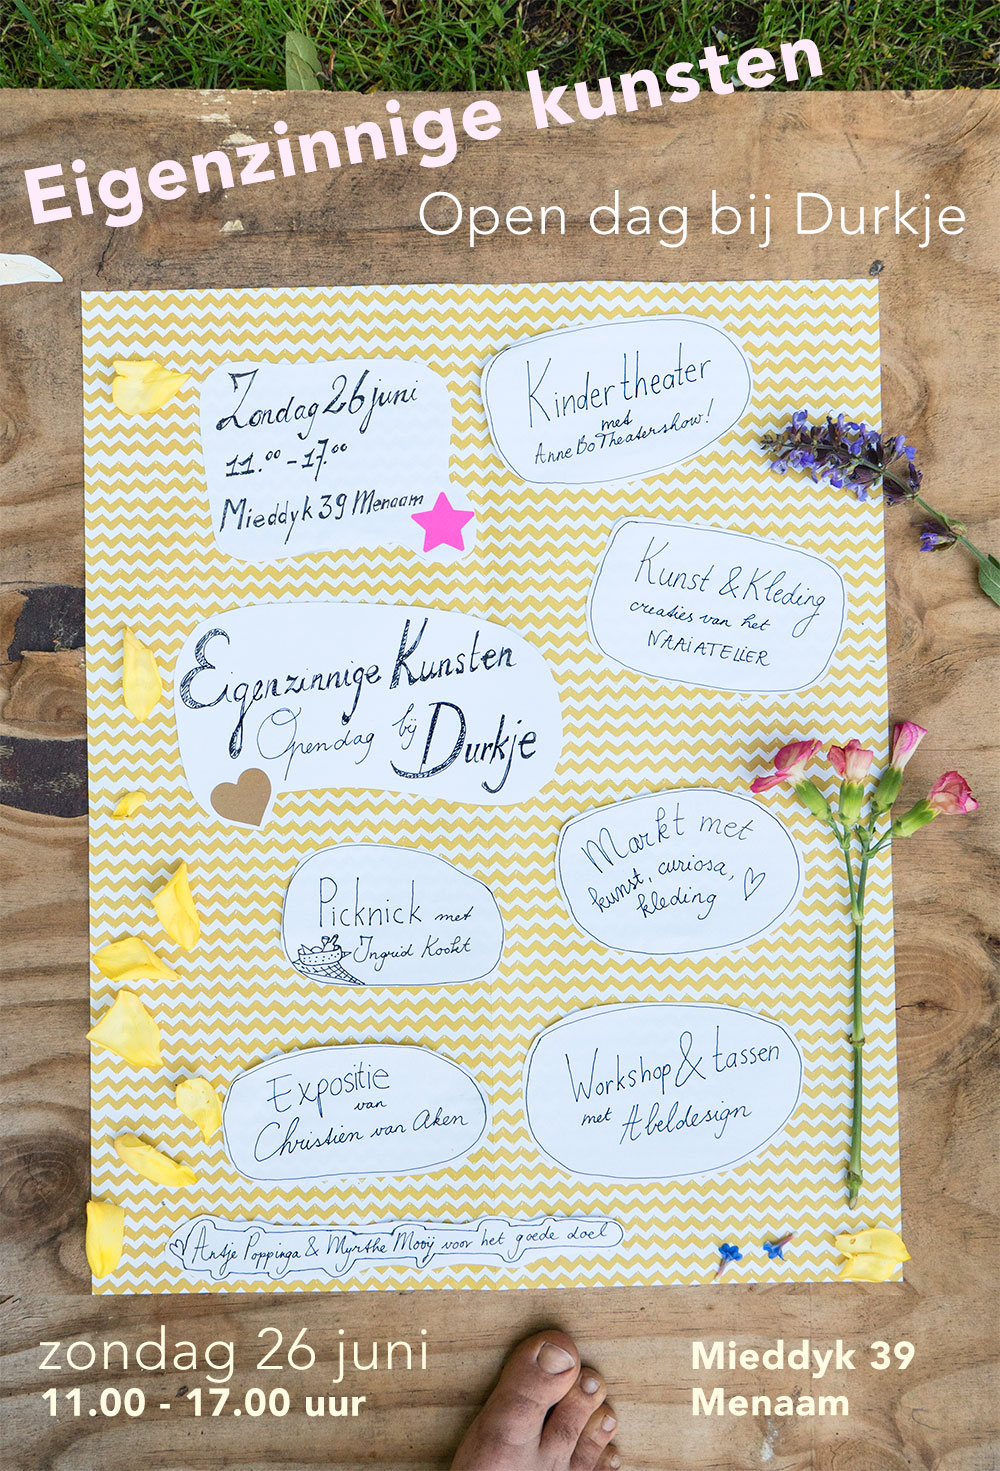 Eigenzinnige kunsten
Open dag bij Durkje
Zondag 26 juni
11.00 - 17.00
Mieddyk 39 Menaam
Kindertheater
met
AnneBoTheatershow!
Kunst & Kleding
creaties van het
NAAIATELIER
Eigenzinnige Kunsten
Open dag bij Durkje
Markt met
kunst, curiosa,
kleding
Picknick met
Ingrid Kookt
Expositie
van
Christien van Aken
Workshop & tassen
met Abeldesign
Antje Poppinga & Myrthe Mooij voor het goede doel
zondag 26 juni
11.00 - 17.00 uur
Mieddyk 39
Menaam